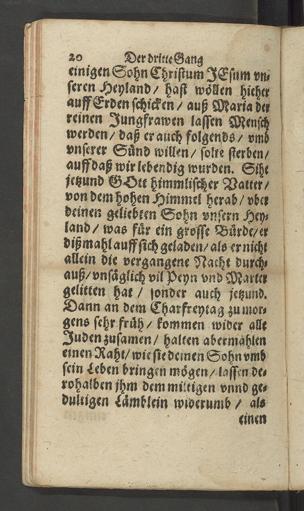 20 Der dritte Gang
einigen Sohn Christum JEsum vn-
seren Heyland / hast wöllen hieher
auff Erden schicken / auß Maria der
reinen Jungfrawen lassen Mensch
werden / daß er auch folgends / vmb
vnserer Sünd willen / solte sterben /
auff daß wir lebendig wurden. Sihe
jetzund GOtt himmlischer Vatter /
von dem hohen Himmel herab / vber
deinen geliebten Sohn vnsern Hey-
land / was für ein grosse Bürde / er
dißmahl auff sich geladen / als er nicht
allein die vergangene Nacht durch-
auß / vnsäglich vil Peyn vnd Marter
gelitten hat / sonder auch jetzund.
Dann an dem Charfreytag zu mor-
gens sehr früh / kommen wider alle
Juden zusamen / halten abermahlen
einen Raht / wie sie deinen Sohn vmb
sein Leben bringen mögen / lassen de-
rohalben jhm dem miltigen vnnd ge-
dultigen Lämblein widerumb / als
einen